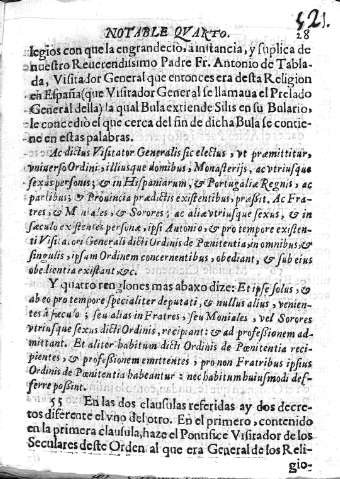 521.
NOTABLE QVARTO. 28
legios con que la engrandeciò, a instancia, y suplica de
nuestro Reuerendissimo Padre Fr. Antonio de Tabla-
da, Visitador General que entonces era desta Religion
en España (que Visitador General se llamaua el Prelado
General della) la qual Bula extiende Silis en su Bulario,
le concediò el que cerca del fin de dicha Bula se contie-
ne en estas palabras.
Ac dictus Visitator Generalis sic electus, vt præmittitur,
vniuerso Ordini, illiusque domibus, Monasterijs, ac vtriusque
sexus personis; & in Hispaniarum, & Portugaliæ Regnis, ac
partibus; & Prouincia prædictis existentibus, præssit. Ac Fra-
tres, & Moniales, & Sorores; ac aliæ vtriusque sexus, & in
sæculo existentes personæ, ipsi Antonio, & pro tempore existen-
ti Visitatori Generali dicti Ordinis de Pœnitentia, in omnibus, &
singulis, ipsam Ordinem concernentibus, obediant, & sub eius
obedientia existant, &c.
Y quatro renglones mas abaxo dize: Et ipse solus, &
ab eo pro tempore specialiter deputati, & nullus alius, venien-
tes à sæculo; seu alias in Fratres, seu Moniales, vel Sorores
vtriusque sexus dicti Ordinis, recipiant: & ad professionem ad-
mittant. Et aliter habitum dicti Ordinis de Pœnitentia reci-
pientes, & professionem emittentes, pro non Fratribus ipsius
Ordinis de Pœnitentia habeantur: nec habitum huiusmodi def-
ferre possint.
55 En las dos clausulas referidas ay dos decre-
tos diferente el vno del otro. En el primero, contenido
en la primera clausula, haze el Pontifice Visitador de los
Seculares deste Orden al que era General de los Reli-
gio-